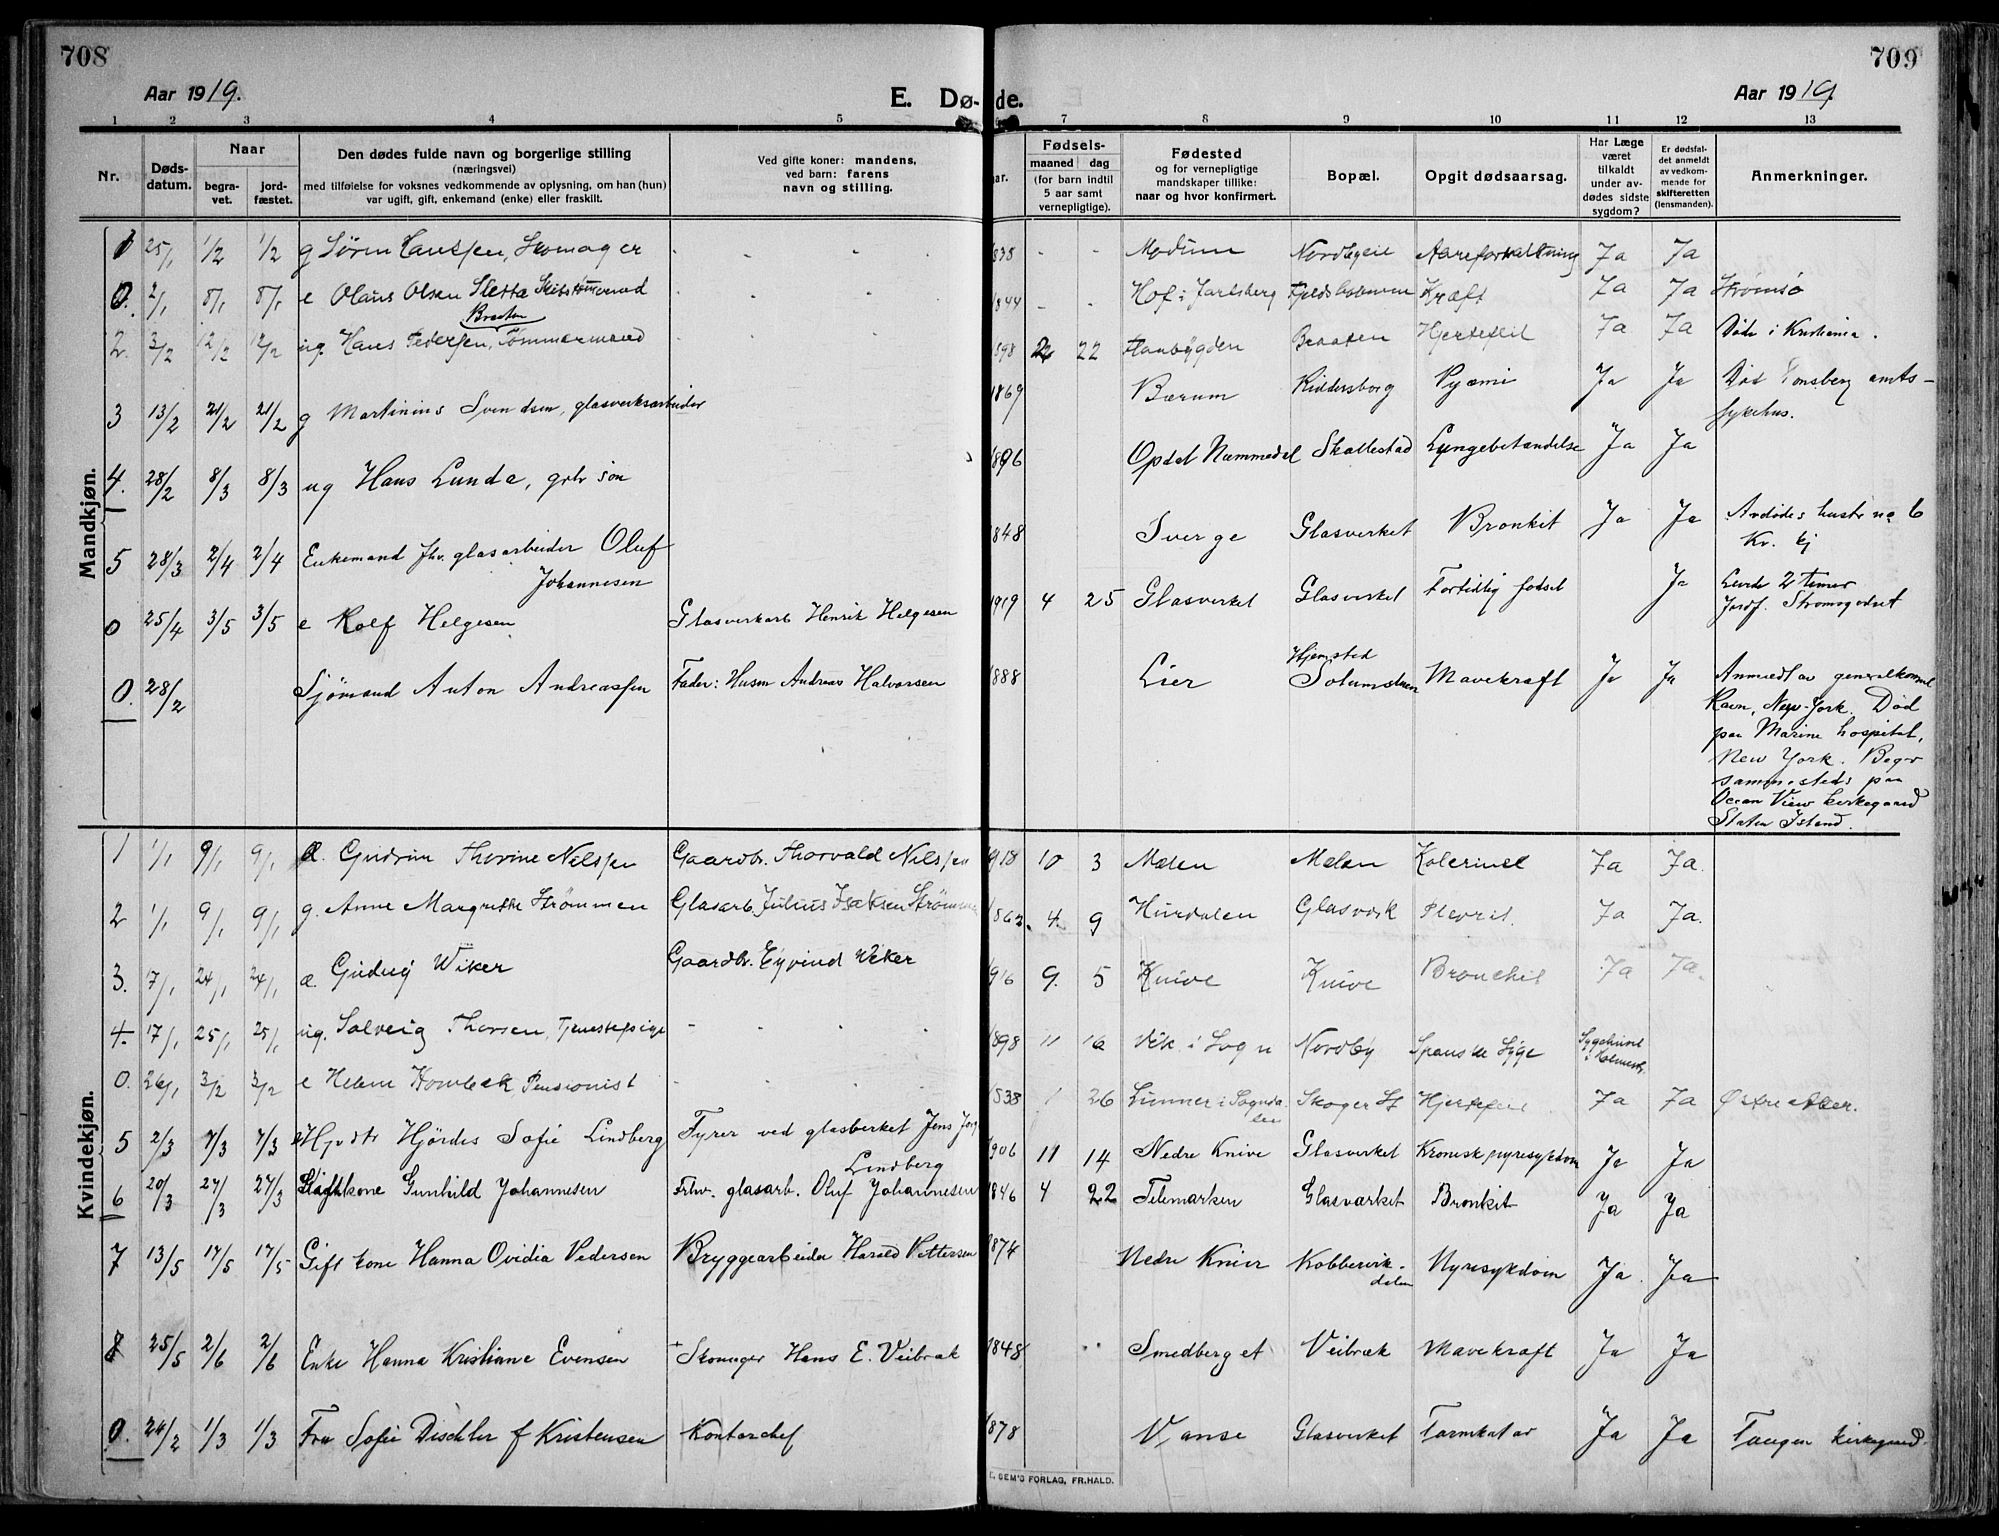 708
709
Aar 1919.
E. Dø-
de.
Aar 1919.
1 2 3 4 5
7 8 9 10 11 12 13
Nr.
Døds-
datum.
Naar
begra-
vet.
jord-
fæstet.
Den dødes fulde navn og borgerlige stilling
(næringsvei)
med tilføielse for voksnes vedkommende av oplysning, om han (hun)
var ugift, gift, enkemand (enke) eller fraskilt.
Ved gifte koner: mandens,
ved barn: farens
navn og stilling.
ar.
Fødsels-
maaned dag
(for barn indtil
5 aar samt
vernepligtige).
Fødested
og for vernepligtige
mandskaper tillike:
naar og hvor konfirmert.
Bopæl.
Opgit dødsaarsag.
Har Læge
været
tilkaldt
under av-
dødes sidste
sygdom?
Er dødsfal-
det anmeldt
av vedkom-
mende for
skifteretten
(lensmanden).
Anmerkninger.
Mandkjøn.
1 25/1 1/2 1/2 g Søren Hanssen, Skomager 1838 - - Modum Aareforkaltning Ja Ja
0. 2/1 8/1 8/1 e Olaus Olsen Sletta 1844 - - Hof i Jarlsberg Kræft Ja Ja Strømsø
Braaten
2. 3/2 12/2 12/2 ug. Hans Pedersen, Tømmermand 1898 22 Braaten Hjertefeil Ja Ja Døde i Kristiania.
3 13/2 21/2 21/2 g Martinius Svendsen, glasverksarbeider 1869 Bærum Riddersborg Pyæmi Ja Ja Død Tønsberg amts-
sykehus.
4. 28/2 8/3 8/3 ug Hans Lunde, grbr søn 1896 Opdal Nummedal Skallestad Lungebetændelse Ja Ja
5 28/3 2/4 2/4 Enkemand fhv. glasarbeider Oluf
Johannesen 1848 Sverge Glasverket Bronkit Ja Ja Avdødes hustr no 6
Kv. kj
0 25/4 3/5 3/5 e Rolf Helgesen Glasverkarb Henrik Helgesen 1919 4 25 Glasverket Glasverket Fortidlig fødsel Ja Levde 2 timer
Jordf. Strømsgodset
0. 28/2 Sjømand Anton Andreassen Fader: Husm Andreas Halvorsen 1888 Lier Hjemsted
Solumstuen Mavekræft Ja Ja Anmeldt av generalkonsul
Ravn, New-York. Død
paa Marine hospital,
New York. Begr
sammesteds paa
Ocean View kirkegaard
Staten Island.
Kvindekjøn.
1 1/1 9/1 9/1 Gudrun Thorine Nilssen Gaardbr. Thorvald Nilssen 1918 10 3 Mælen Mælen Kolerine Ja Ja.
2 1/1 9/1 9/1 g. Anne Margrethe Strømmen Glasarb. Julius Isaksen Strømmen 1862. 4. 9 Hurdalen Glasverk Plevrit. Ja Ja.
3. 17/1 24/1 24/1 Gudny Wiker Gaardbr. Eyvind Wiker 1916 9. 5 Knive Knive Bronchit Ja Ja.
4. 17/1 25/1 25/1 ug. Solveig Thorsen, Tjenestepige - - - 1898 11 16 Vik i Sogn Nordby Spanske Syge
0. 26/1 3/2 3/2 e Helene Pensionist - - 1838 1 26 Lunner i Sogndalen Skoger Hjertefeil Ja Ja
5 2/3 7/3 7/3 Hjørdis Sofie Lindberg Fyrer ved glasverket Jens
Lindberg 1906 11 14 Nedre Knive Glasverket Kronisk nyresykdom Ja Ja
6 20/3 27/3 27/3 Gift kone Gunhild Johannesen Fhv. glasarb. Oluf Johannesen 1846 4 22 Telemarken Glasværket Bronkit Ja Ja
7 13/5 17/5 17/5 Gift kone Hanna Ovidia Pedersen Bryggearbeider Harald Pettersen 1874 Nedre Kniv Kobbervik-
dalen Nyresykdom Ja Ja
8 25/5 2/6 2/6 Enke Hanna Kristiane Evensen Skomager Hans E. Veibræk 1848 Smedberget Veibræk Mavekræft Ja Ja
0. 24/2 1/3 1/3 Fru Sofie Dischler f Kristensen Kontorchef 1878 Vanse Glasverket Tarmkatar Ja Ja Tangen kirkegaard.
E. SEM'S FORLAG, FR.HALD.